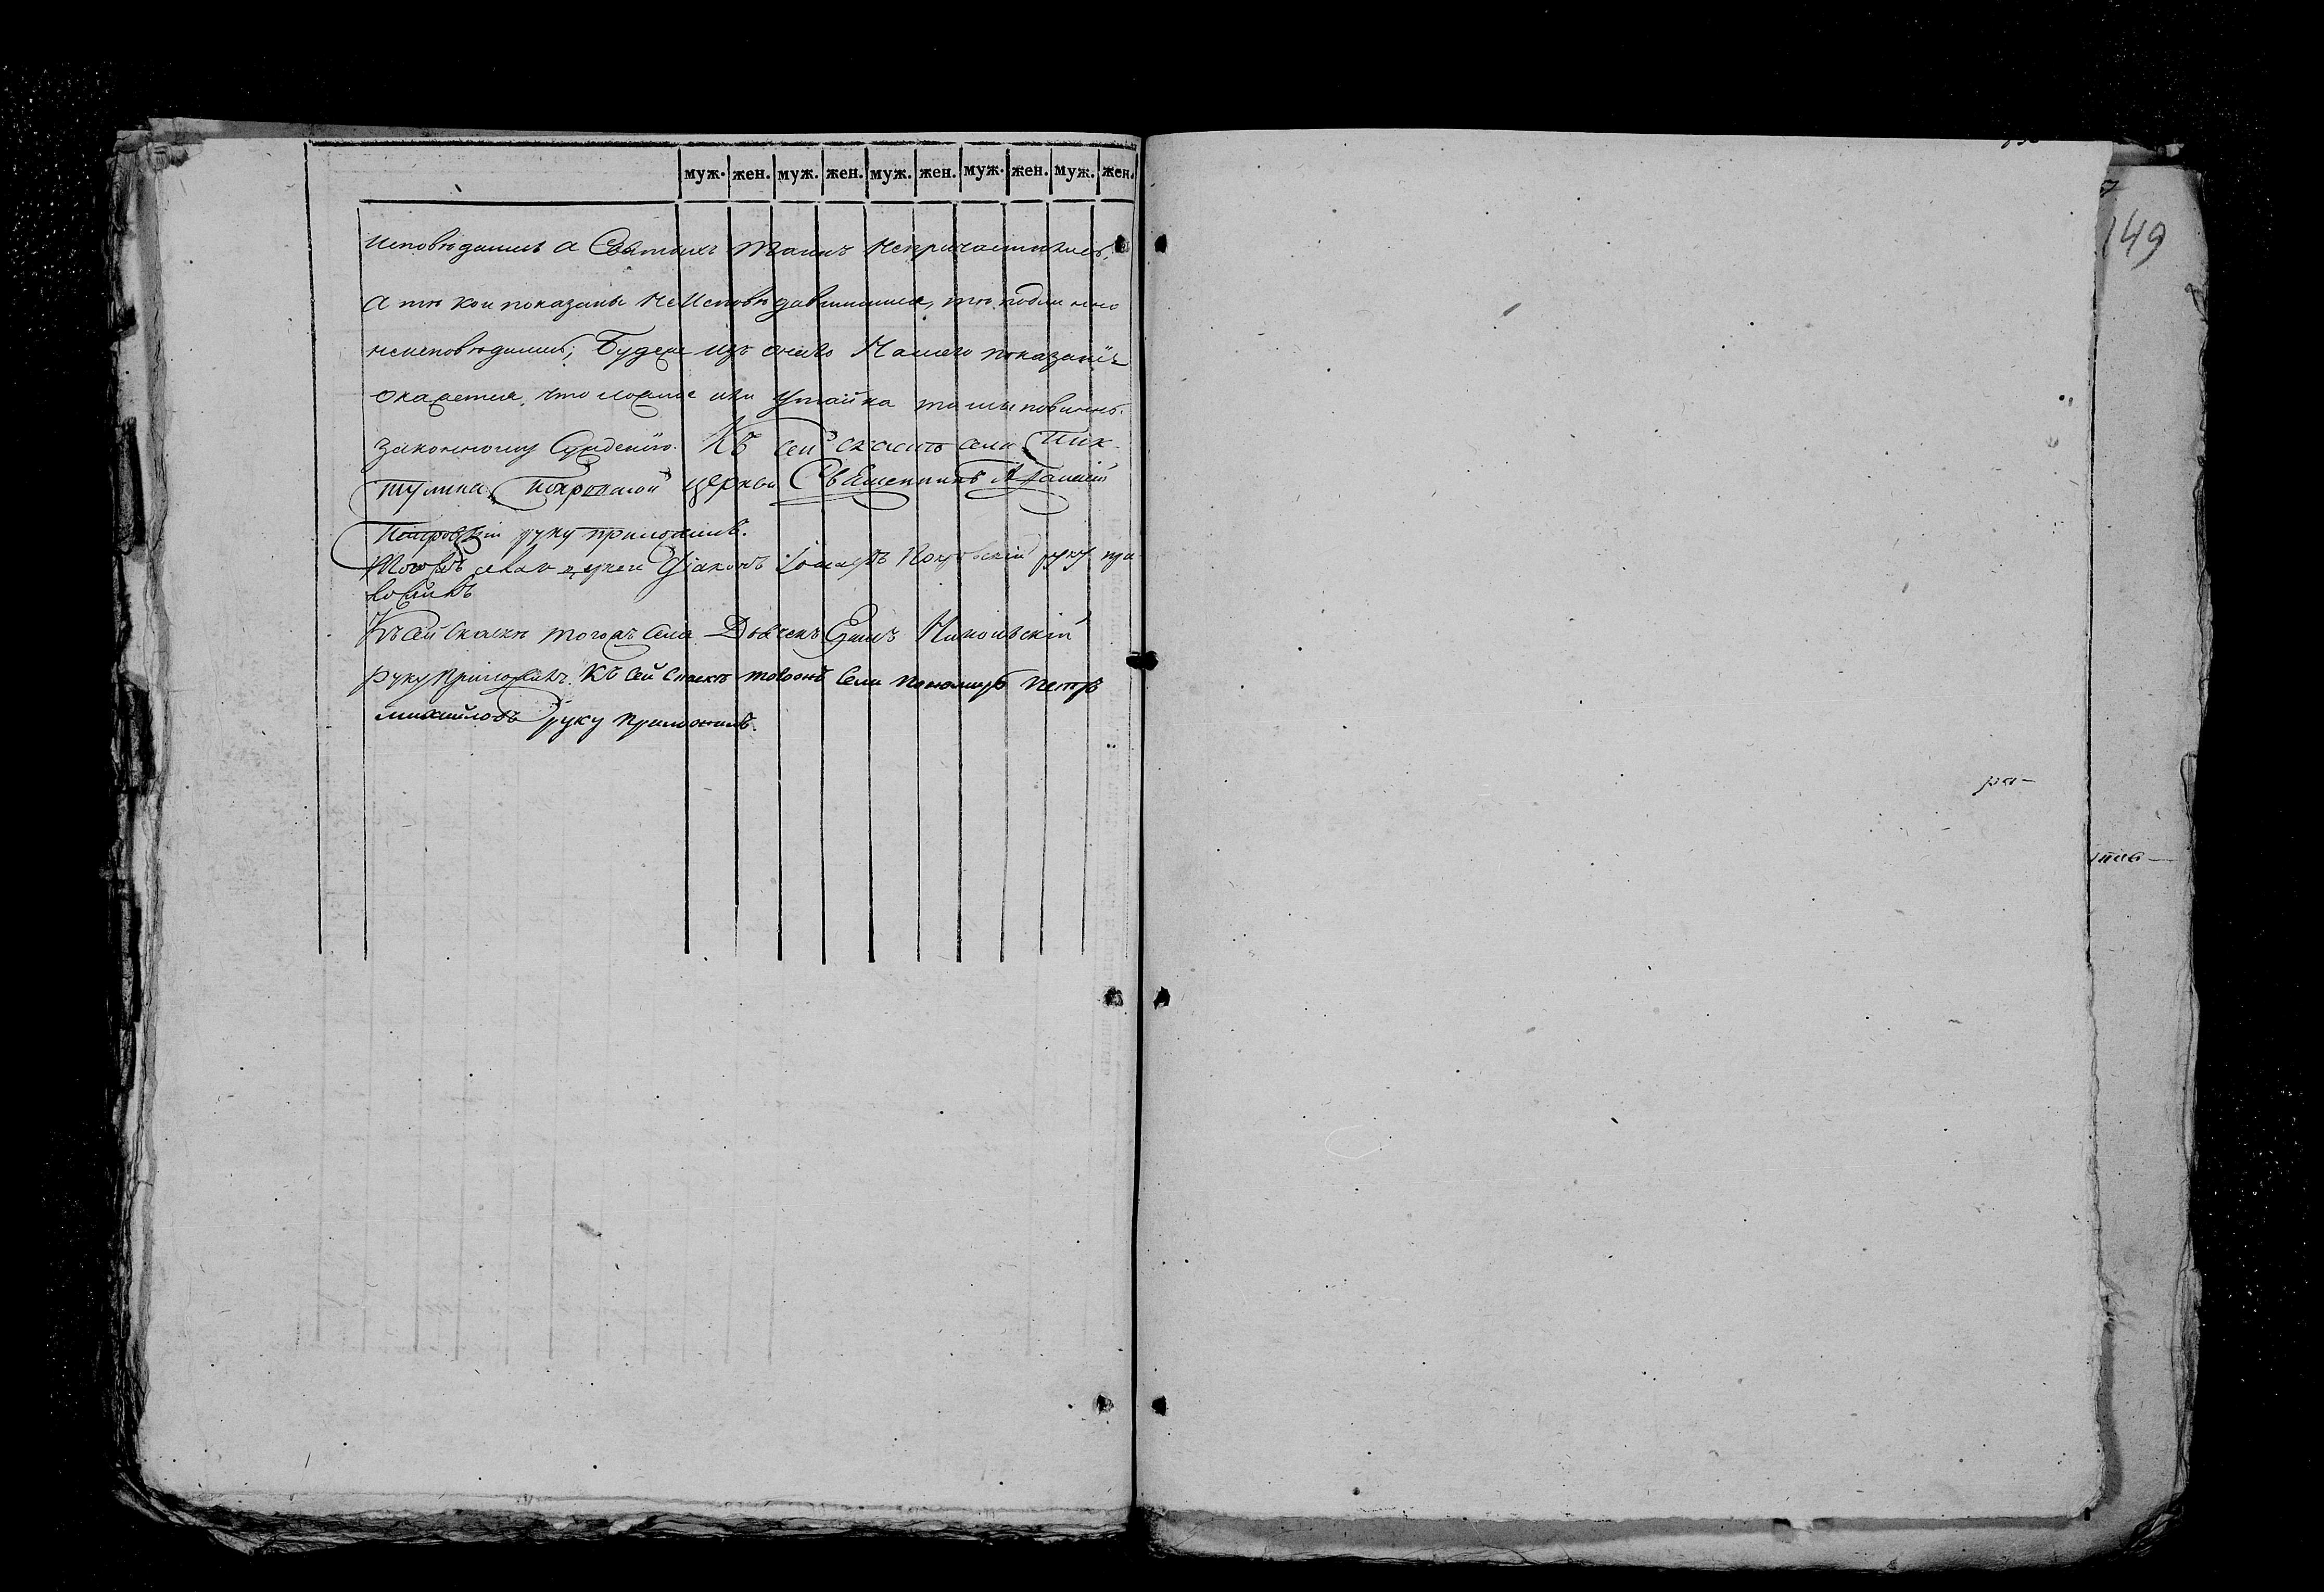 муж. жен. муж. жен. муж. жен. муж. жен. муж. жен.
исповѣдались а Святыхъ Таинъ непричастились,
а тѣ кои показаны неисповѣдавшимися, тѣ подлинно
неисповѣдались; Будеже изъ онаго Нашего показанія
окажется что ложное или утайка то мы повинны
законному Сужденію. Къ сей сказкѣ села
Покровской церкви Священникъ
Петровскій руку приложилъ.
Тогожъ села церкви Діаконъ Покровскій руку при
ложилъ
Къ Сей Сказкѣ тогожъ Села Дьячекъ Никольскій
руку приложилъ. Къ сей Сказкѣ тогожъ Села пономарь петръ
михайловъ руку приложилъ.
149
ра-